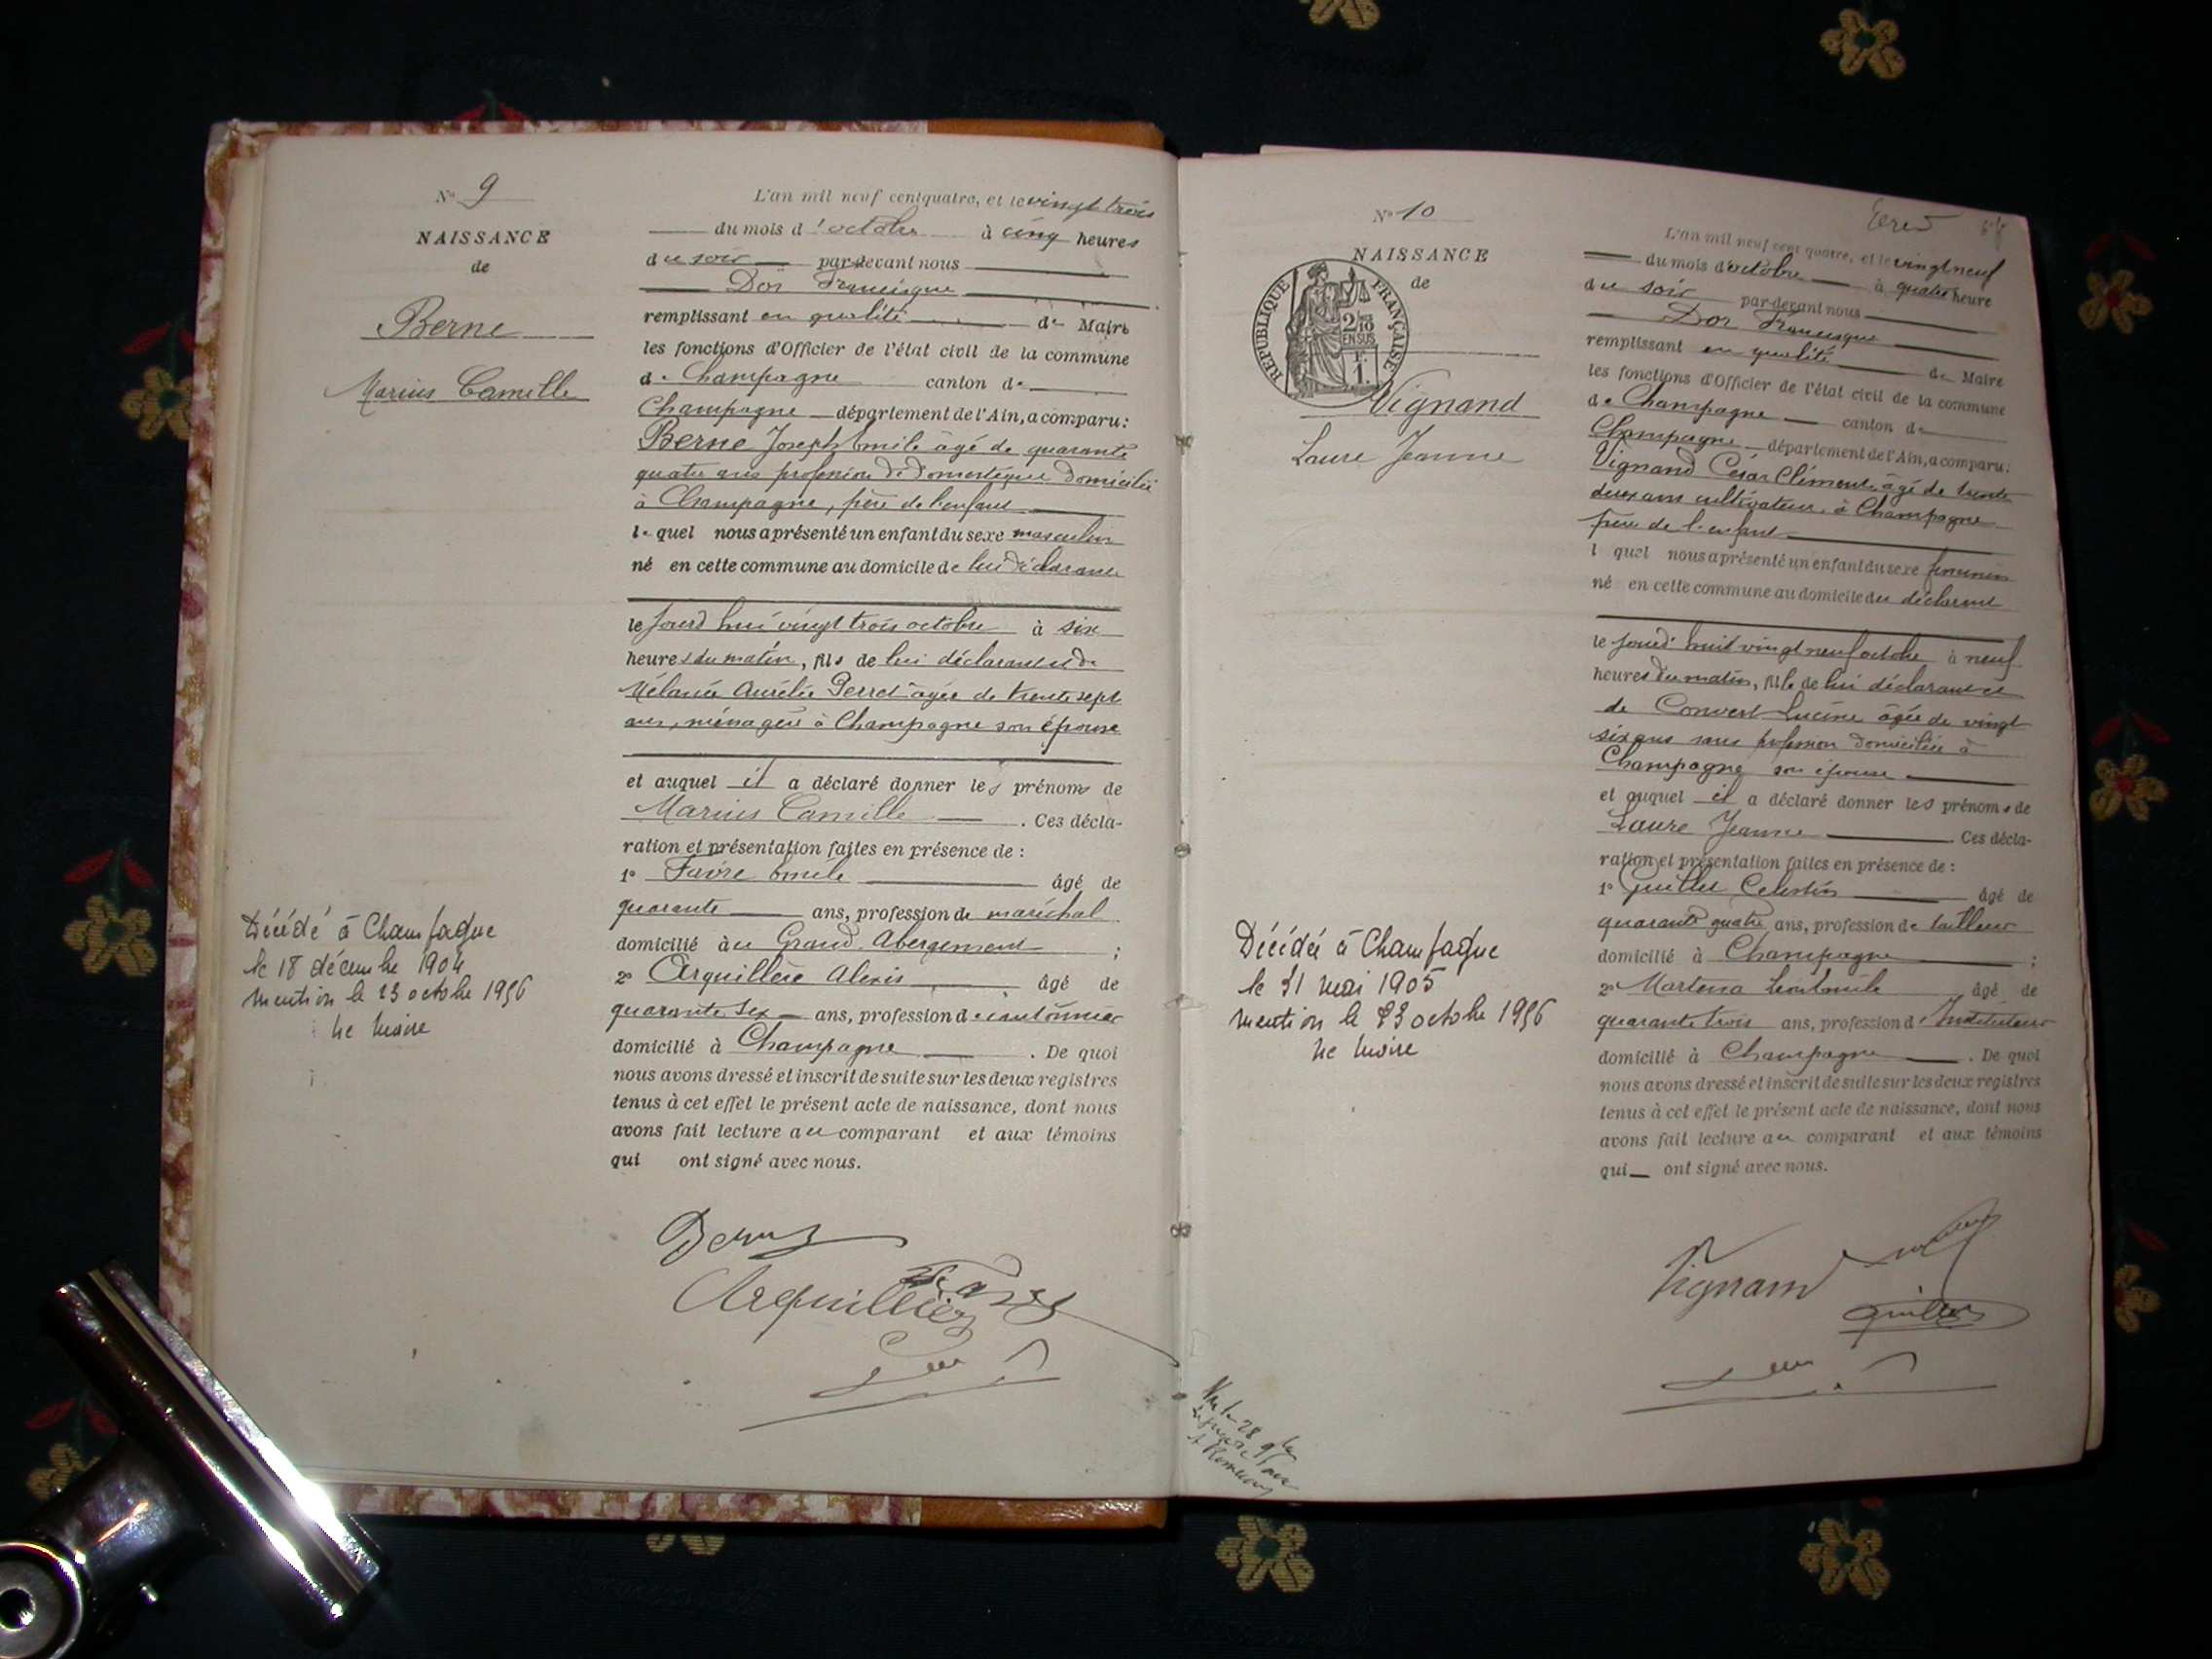 N° 9
NAISSANCE
de
Berne
Marius Camille
Décédé à Champagne
le 18 décembre 1904
mention le 23 octobre 1956
Le Maire
L'an mil neuf cent quatre, et le vingt trois
du mois d'octobre à cinq heures
du soir par-devant nous
Dor Francisque
remplissant en qualité de Maire
les fonctions d'Officier de l'état civil de la commune
de Champagne canton de
Champagne département de l'Ain, a comparu :
Berne Joseph Emile âgé de quarante
quatre ans profession de domestique domicilié
à Champagne, père de l'enfant
lequel nous a présenté un enfant du sexe masculin
né en cette commune au domicile de lui déclarant
le jourd'hui vingt trois octobre à six
heures du matin, fils de lui déclarant et de
Mélanie Aurélie Perret âgée de trente sept
ans, ménagère à Champagne son épouse
et auquel il a déclaré donner les prénoms de
Marius Camille . Ces décla-
ration et présentation faites en présence de :
1° Favre Emile âgé de
quarante ans, profession de maréchal
domicilié au Grand Abergement ;
2° Arquillère Alexis âgé de
quarante six ans, profession de cantonnier
domicilié à Champagne . De quoi
nous avons dressé et inscrit de suite sur les deux registres
tenus à cet effet le présent acte de naissance, dont nous
avons fait lecture au comparant et aux témoins
qui ont signé avec nous.
Berne
Favre
Arquillière
N° 10
NAISSANCE
de
RÉPUBLIQUE FRANÇAISE
2/10
EN SUS
1 F.
Vignand
Laure Jeanne
Décédée à Champagne
le 31 mai 1905
mention le 23 octobre 1956
Le Maire
L'an mil neuf cent quatre, et le vingt neuf
du mois d'octobre à quatre heure
du soir par-devant nous
Dor Francisque
remplissant en qualité de Maire
les fonctions d'Officier de l'état civil de la commune
de Champagne canton de
Champagne département de l'Ain, a comparu :
Vignand César Clément âgé de trente
deux ans cultivateur à Champagne
père de l'enfant
l quel nous a présenté un enfant du sexe féminin
né en cette commune au domicile du déclarant
le jourd'huit vingt neuf octobre à neuf
heures du matin, fille de lui déclarant et
de Convert Lucine âgée de vingt
six ans sans profession domiciliée à
Champagne son épouse
et auquel il a déclaré donner les prénoms de
Laure Jeanne . Ces décla-
ration et présentation faites en présence de :
1° Guillet Celestin âgé de
quarante quatre ans, profession de tailleur
domicilié à Champagne ;
2° âgé de
quarante trois ans, profession d'Instituteur
domicilié à Champagne . De quoi
nous avons dressé et inscrit de suite sur les deux registres
tenus à cet effet le présent acte de naissance, dont nous
avons fait lecture au comparant et aux témoins
qui ont signé avec nous.
Vignand
Guillet